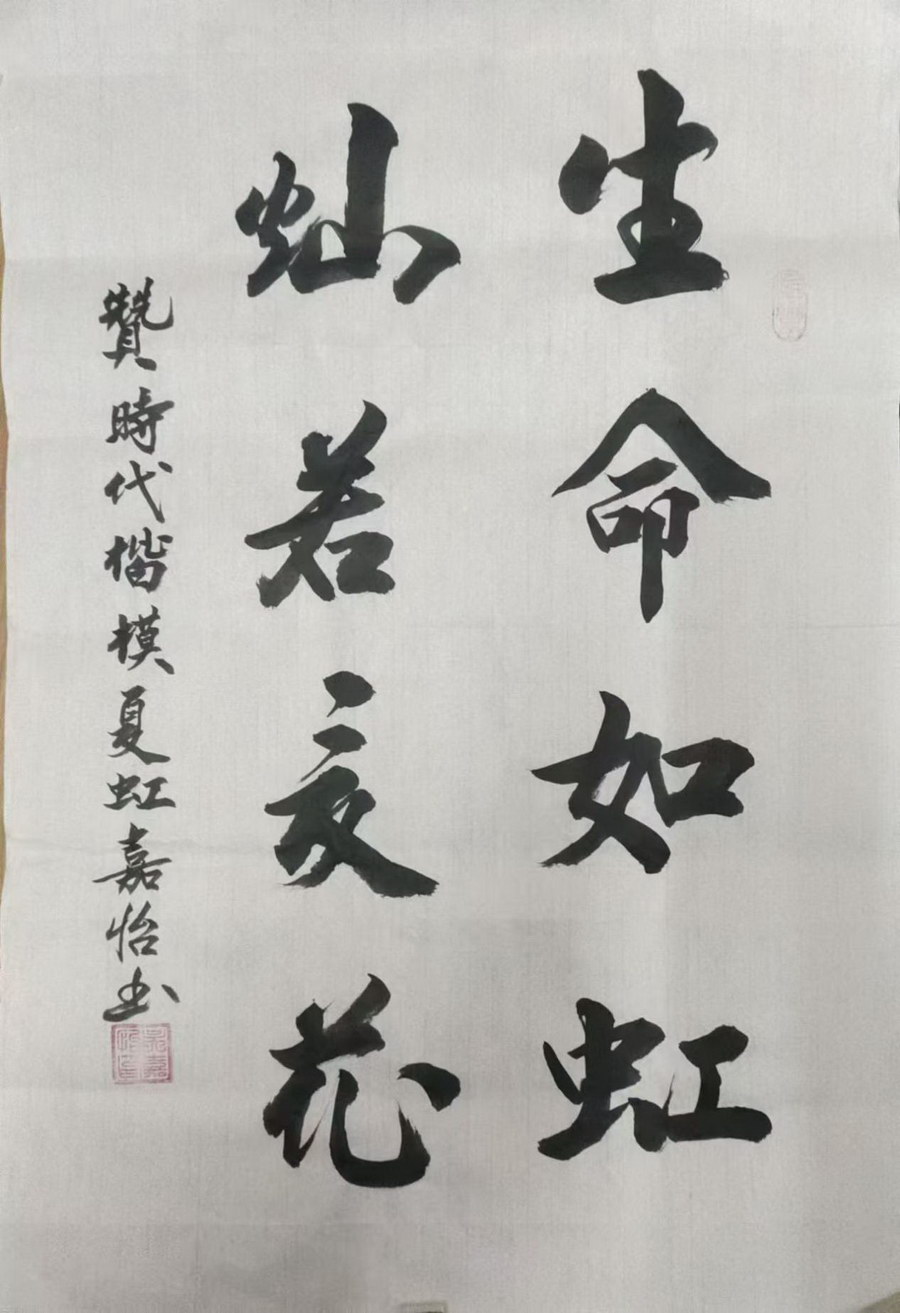 生命如虹
灿若夏花
贊時代楷模夏虹嘉怡书